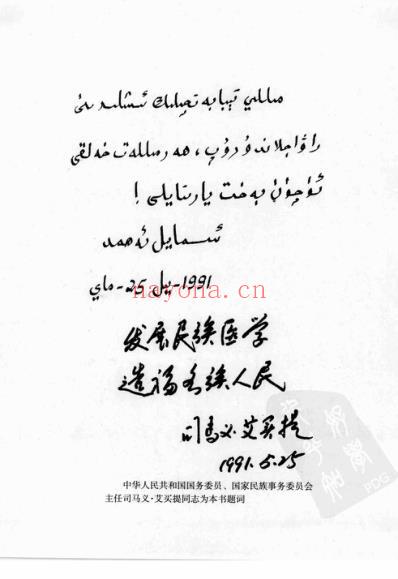 مىللىي تېبابەتچىلىك ئىشلىرىنى
راۋاجلاندۇرۇپ، ھەر مىللەت خەلقى
ئۈچۈن بەخت يارىتايلى!
ئىسمايىل ئەھمەد
1991-يىل 25-ماي
nayona.cn
发展民族医学
造福各族人民
司马义·艾买提
1991.5.25
中华人民共和国国务委员、国家民族事务委员会
主任司马义·艾买提同志为本书题词
PDG